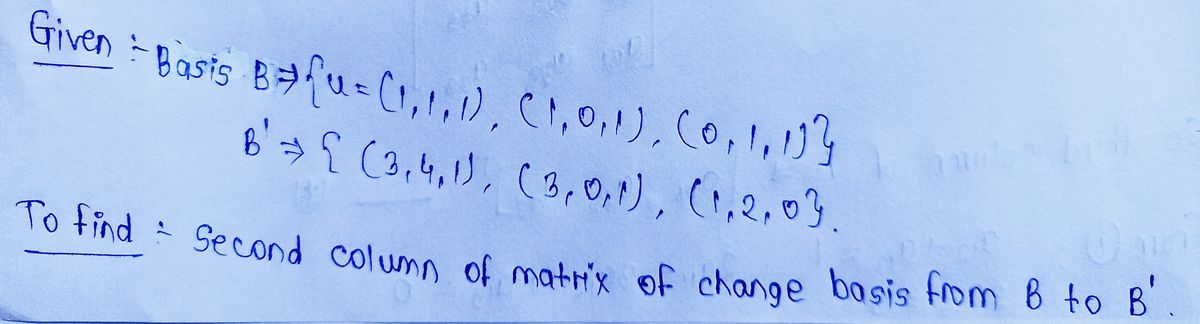 Given :- Basis B ⇒ {u = (1,1,1), (1,0,1), (0,1,1)}
B' ⇒ { (3,4,1), (3,0,1), (1,2,0}.
To find :- Second column of matrix of change basis from B to B'.